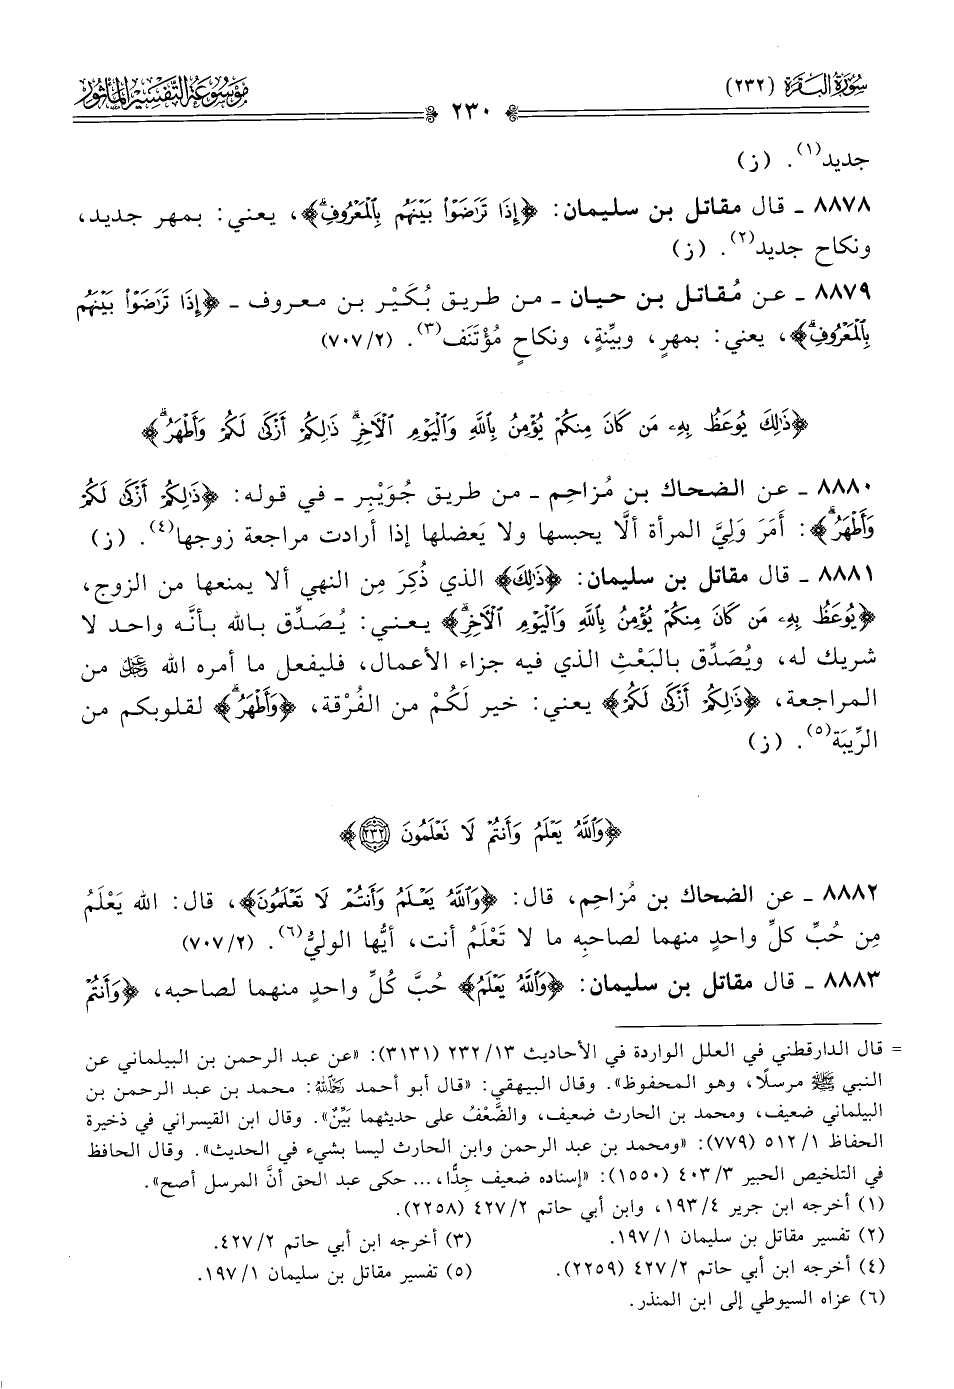 سُورَةُ البَقَرَةِ (٢٣٢)
٢٣٠
مَوْسُوعَة التَّفْسِيرِ المَأْثُور
جديد(١). (ز)
٨٨٧٨ ـ قال مقاتل بن سليمان: ﴿إِذَا تَرَٰضَوْا۟ بَيْنَهُم بِٱلْمَعْرُوفِۗ﴾، يعني: بمهر جديد،
ونكاح جديد(٢). (ز)
٨٨٧٩ ـ عن مُقاتل بن حيان ـ من طريق بُكَيْر بن معروف ـ ﴿إِذَا تَرَٰضَوْا۟ بَيْنَهُم
بِٱلْمَعْرُوفِۗ﴾، يعني: بمهرٍ، وبيِّنةٍ، ونكاحٍ مُؤْتَنَف(٣). (٧٠٧/٢)
﴿ذَٰلِكَ يُوعَظُ بِهِۦ مَن كَانَ مِنكُمْ يُؤْمِنُ بِٱللَّهِ وَٱلْيَوْمِ ٱلْءَاخِرِۗ ذَٰلِكُمْ أَزْكَىٰ لَكُمْ وَأَطْهَرُۗ﴾
٨٨٨٠ ـ عن الضحاك بن مُزاحِم ـ من طريق جُوَيْبِر ـ في قوله: ﴿ذَٰلِكُمْ أَزْكَىٰ لَكُمْ
وَأَطْهَرُۗ﴾: أَمَرَ وَلِيَّ المرأة ألَّا يحبسها ولا يَعضلها إذا أرادت مراجعة زوجها(٤). (ز)
٨٨٨١ ـ قال مقاتل بن سليمان: ﴿ذَٰلِكَ﴾ الذي ذُكِرَ مِن النهي ألا يمنعها من الزوج،
﴿يُوعَظُ بِهِۦ مَن كَانَ مِنكُمْ يُؤْمِنُ بِٱللَّهِ وَٱلْيَوْمِ ٱلْءَاخِرِۗ﴾ يعني: يُصَدِّق بالله بأنَّه واحد لا
شريك له، ويُصَدِّق بالبَعْثِ الذي فيه جزاء الأعمال، فليفعل ما أمره الله ﷿ من
المراجعة، ﴿ذَٰلِكُمْ أَزْكَىٰ لَكُمْ﴾ يعني: خير لَكُمْ من الفُرْقة، ﴿وَأَطْهَرُۗ﴾ لقلوبكم من
الرِّيبَة(٥). (ز)
﴿وَٱللَّهُ يَعْلَمُ وَأَنتُمْ لَا تَعْلَمُونَ ۝٢٣٢﴾
٨٨٨٢ ـ عن الضحاك بن مُزاحِم، قال: ﴿وَٱللَّهُ يَعْلَمُ وَأَنتُمْ لَا تَعْلَمُونَ﴾، قال: الله يَعْلَمُ
مِن حُبِّ كلِّ واحدٍ منهما لصاحبِه ما لا تَعْلَمُ أنت، أيُّها الوليُّ(٦). (٧٠٧/٢)
٨٨٨٣ ـ قال مقاتل بن سليمان: ﴿وَٱللَّهُ يَعْلَمُ﴾ حُبَّ كُلِّ واحدٍ منهما لصاحبه، ﴿وَأَنتُمْ
= قال الدارقطني في العلل الواردة في الأحاديث ١٣/ ٢٣٢ (٣١٣١): «عن عبد الرحمن بن البيلماني عن
النبي ﷺ مرسلًا، وهو المحفوظ». وقال البيهقي: «قال أبو أحمد رَحِمَهُ اللهُ: محمد بن عبد الرحمن بن
البيلماني ضعيف، ومحمد بن الحارث ضعيف، والضَّعْفُ على حديثهما بَيِّنٌ». وقال ابن القيسراني في ذخيرة
الحفاظ ١/ ٥١٢ (٧٧٩): «ومحمد بن عبد الرحمن وابن الحارث ليسا بشيء في الحديث». وقال الحافظ
في التلخيص الحبير ٣/ ٤٠٣ (١٥٥٠): «إسناده ضعيف جدًّا،... حكى عبد الحق أنَّ المرسل أصح».
(١) أخرجه ابن جرير ٤/ ١٩٣، وابن أبي حاتم ٢/ ٤٢٧ (٢٢٥٨).
(٢) تفسير مقاتل بن سليمان ١/ ١٩٧.
(٣) أخرجه ابن أبي حاتم ٢/ ٤٢٧.
(٤) أخرجه ابن أبي حاتم ٢/ ٤٢٧ (٢٢٥٩).
(٥) تفسير مقاتل بن سليمان ١/ ١٩٧.
(٦) عزاه السيوطي إلى ابن المنذر.